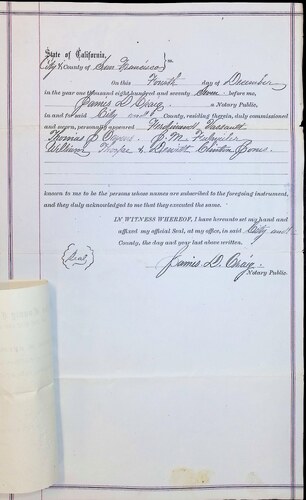 State of California,
City & County of San Francisco } ss.
On this Fourth day of December
in the year one thousand eight hundred and seventy Seven before me,
James D. Craig, a Notary Public,
in and for said City and County, residing therein, duly commissioned
and sworn, personally appeared Ferdinand Vassault
Thomas
William & Dewitt Clinton Jones
known to me to be the persons whose names are subscribed to the foregoing instrument,
and they duly acknowledged to me that they executed the same.
IN WITNESS WHEREOF, I have hereunto set my hand and
affixed my official Seal, at my office, in said City and
County, the day and year last above written.
(Seal)
James D. Craig.
Notary Public.